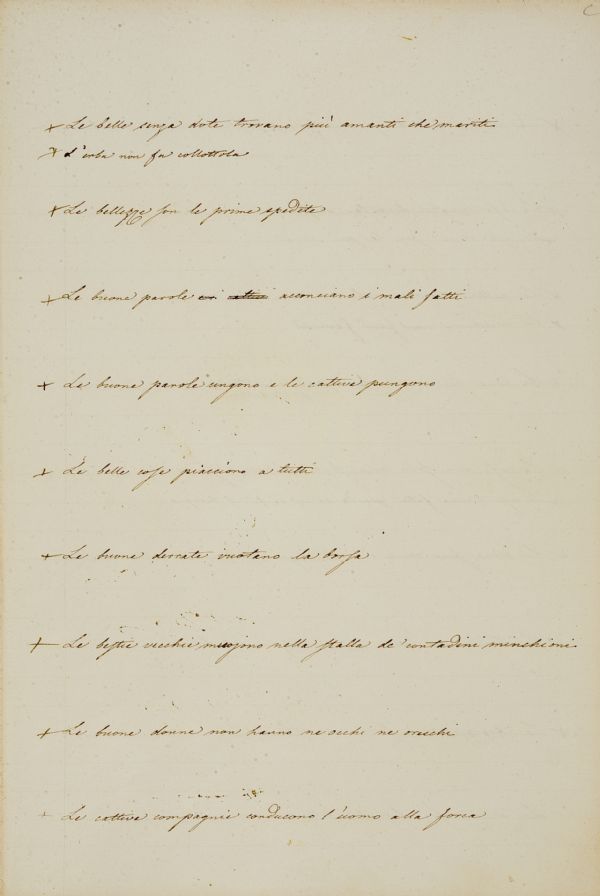 + Le belle senza dote trovano più amanti che mariti
+ L'erba non fa collottola
+ Le bellezze son le prime spedite
+ Le buone parole acconciano i mali fatti
+ Le buone parole ungono e le cattive pungono
+ Le belle cose piacciono a tutti
+ Le buone derrate vuotano la borsa
+ Le bestie vecchie muojono nella stalla de' contadini minchioni
+ Le buone donne non hanno ne occhi ne orecchi
+ Le cattive compagnie conducono l'uomo alla forca